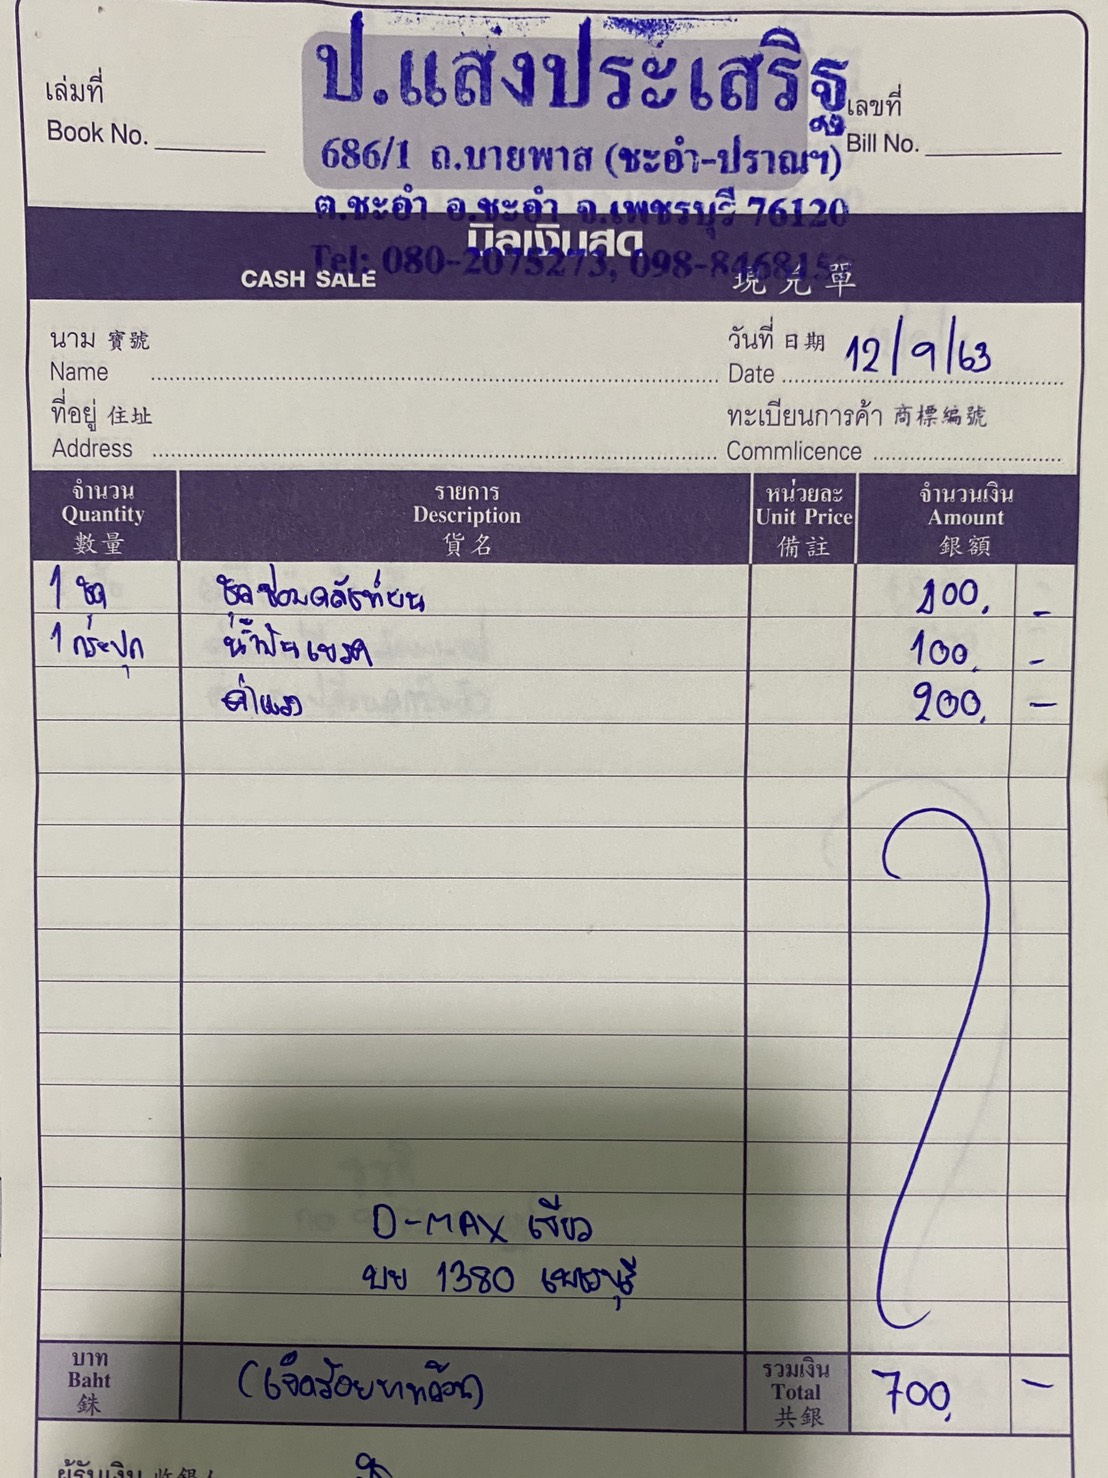 ป.แสงประเสริฐ
เล่มที่
Book No.
เลขที่
Bill No.
686/1 ถ.บายพาส (ชะอำ-ปราณฯ)
ต.ชะอำ อ.ชะอำ จ.เพชรบุรี 76120
บิลเงินสด
Tel: 080-2075273, 098-846815
CASH SALE 現兌單
นาม 寶號
Name
วันที่ 日期 12/9/63
Date
ที่อยู่ 住址
Address
ทะเบียนการค้า 商標編號
Commlicence
จำนวน รายการ หน่วยละ จำนวนเงิน
Quantity Description Unit Price Amount
數量 貨名 備註 銀額
1 ชุด ชุดซ่อมคลัชท์บน -
1 กระปุก น้ำมันเบรค 100. -
ค่าแรง 200. -
D-MAX เขียว
บย 1380 เพชรบุรี
บาท รวมเงิน
Baht (เจ็ดร้อยบาทถ้วน) Total 700. -
銖 共銀
ผู้รับเงิน 收銀人